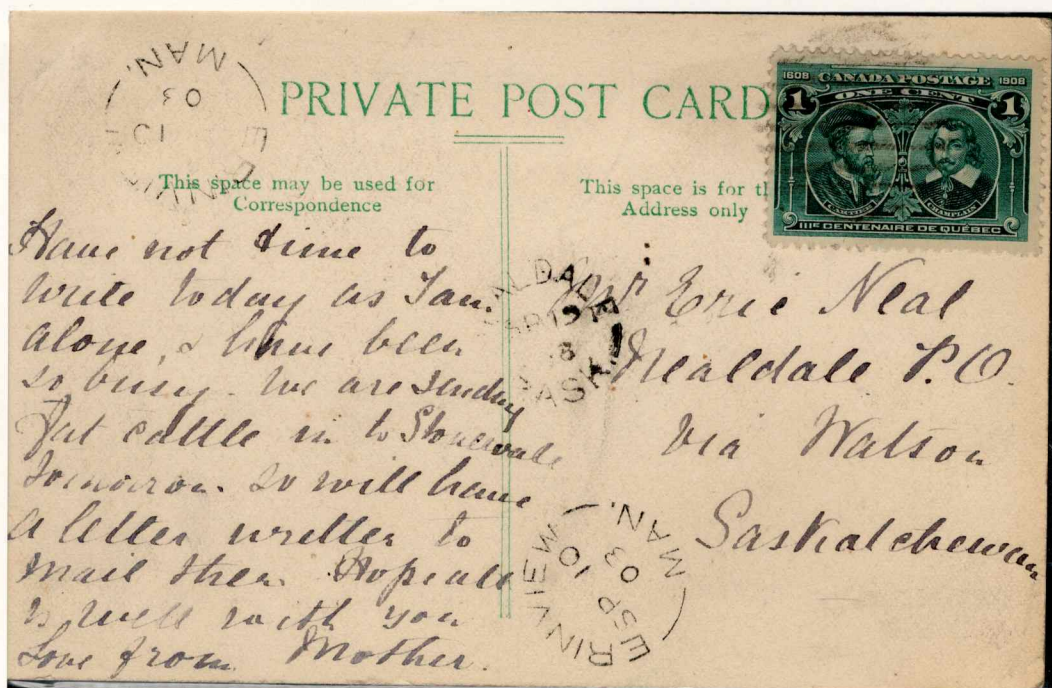 PRIVATE POST CARD
This space may be used for
Correspondence
This space is for th
Address only
1608 CANADA POSTAGE 1908
1 ONE CENT 1
CARTIER CHAMPLAIN
IIIe CENTENAIRE DE QUÉBEC
Have not time to
write today as I am
alone, & have been
so busy. We are sending
fat cattle in to Stonewall
tomorrow. so will have
a letter written to
mail then. Hope all
is well with you
Love from Mother.
Mr Eric Neal
Nealdale P.O.
Via Watson
Saskatchewan
MAN.
03
ALDALE
SASK.
ERINVIEW
SP 10
03
MAN.